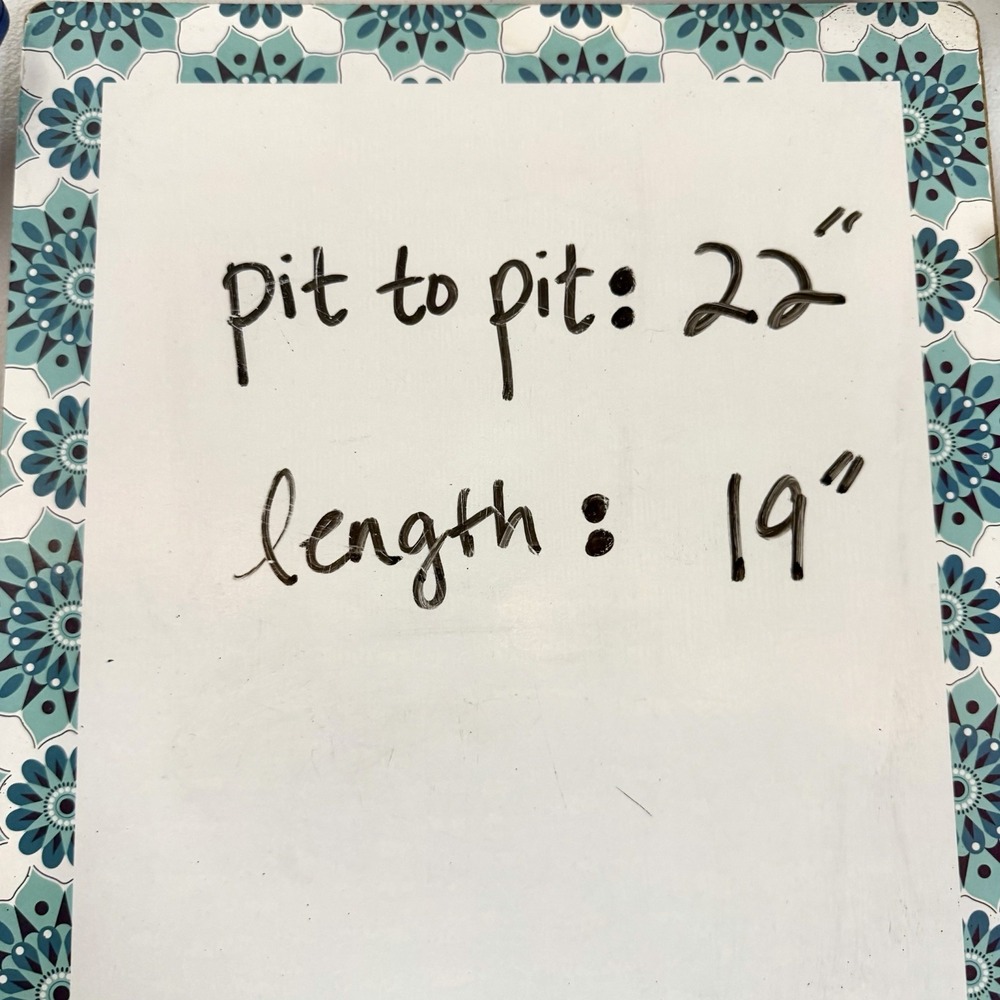 pit to pit: 22"
length: 19"